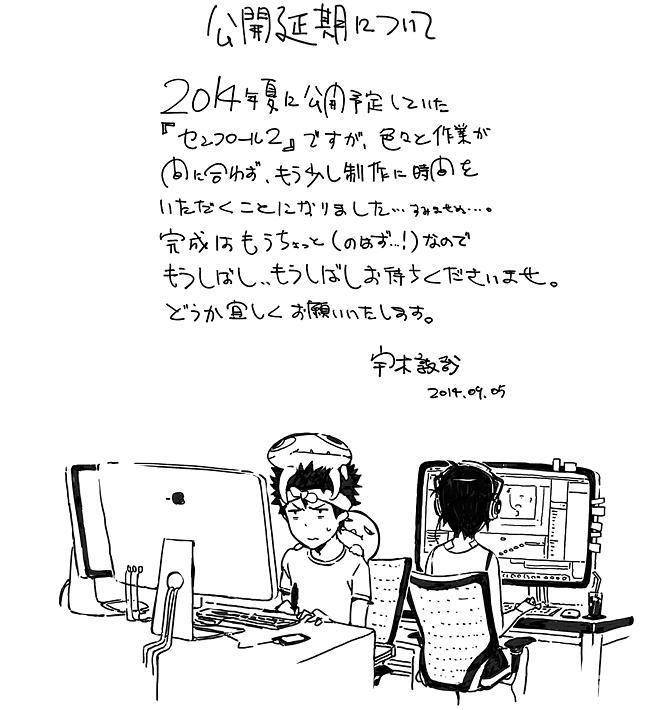 公開延期について
2014年夏に公開予定していた
『センコロール2』ですが、色々と作業が
間に合わず、もう少し制作に時間を
いただくことになりました…すみません…。
完成はもうちょっと(のはず…!)なので
もうしばし、、もうしばしお待ちくださいませ。
どうか宜しくお願いいたします。
宇木敦哉
2014.09.05